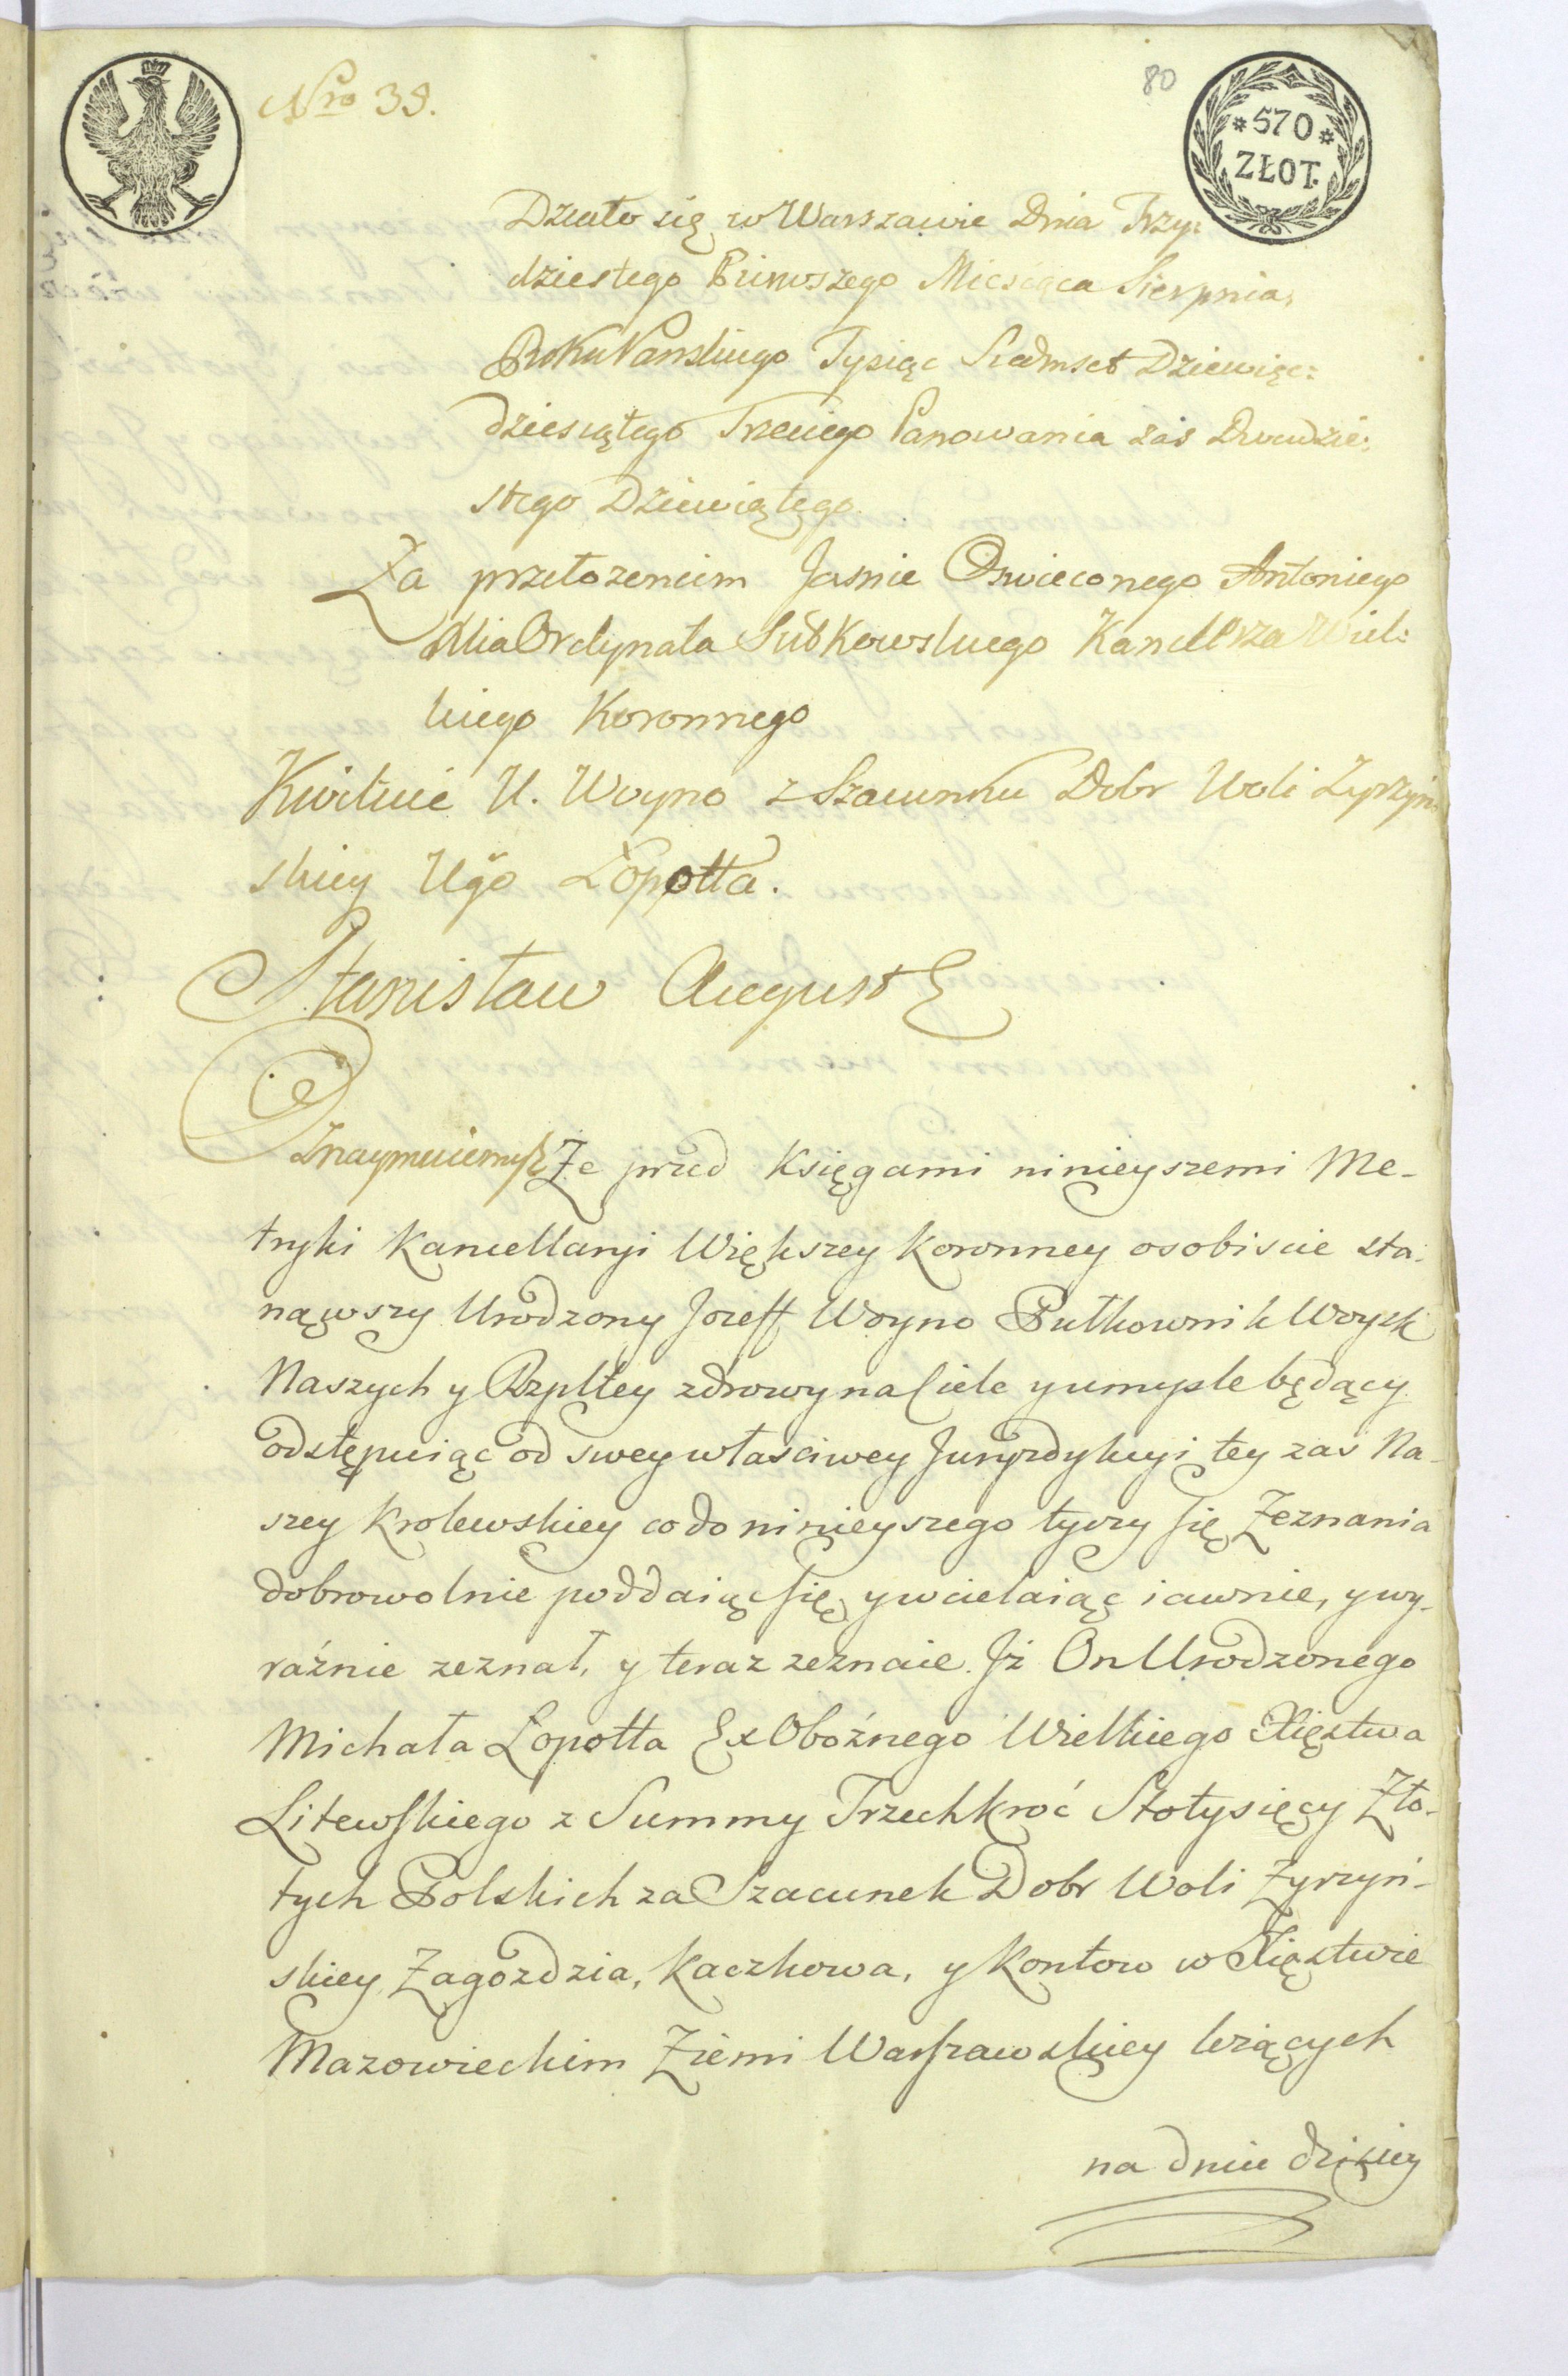 Nro 39.
80
*570*
ZŁOT.
Działo się w Warszawie Dnia Trzy:
dziestego Pierwszego Miesiąca Sierpnia,
Roku Panskiego Tysiąc Siedmset Dziewięc:
dziesiątego Trzeciego Panowania zaś Dwudzie:
stego Dziewiątego.
Za przełozeniem Jasnie Oswieconego Antoniego
Xcia Ordynata Sułkowskiego Kanclerza Wiel:
kiego Koronnego
Kwituie U. Woyno z Szacunku Dobr Woli Zyrzyn:
skiey Ugo Łopotta.
Stanisław August
Oznaymuiemy Ze przed Księgami ninieyszemi Me-
tryki Kancellaryi Większey Koronney osobiscie sta-
nąwszy Urodzony Jozeff Woyno Pułkownik Woysk
Naszych y Rzpltey zdrowy na Ciele y umysle będący
odstępuiąc od swey własciwey Juryzdykcyi tey zas Na-
szey Krolewskiey co do ninieyszego tyczy się Zeznania
dobrowolnie poddaiąc się y wcielaiąc iawnie, y wy-
raźnie zeznał, y teraz zeznaie. Jż On Urodzonego
Michała Łopotta Ex Oboźnego Wielkiego Xięstwa
Litewskiego z Summy Trzechkroć Stotysięcy Zło-
tych Polskich za Szacunek Dobr Woli Zyrzyń-
skiey, Zagozdzia, Kaczkowa, y Kontow w Xięstwie
Mazowieckim Ziemi Warszawskiey leżących
na dniu dzisiey